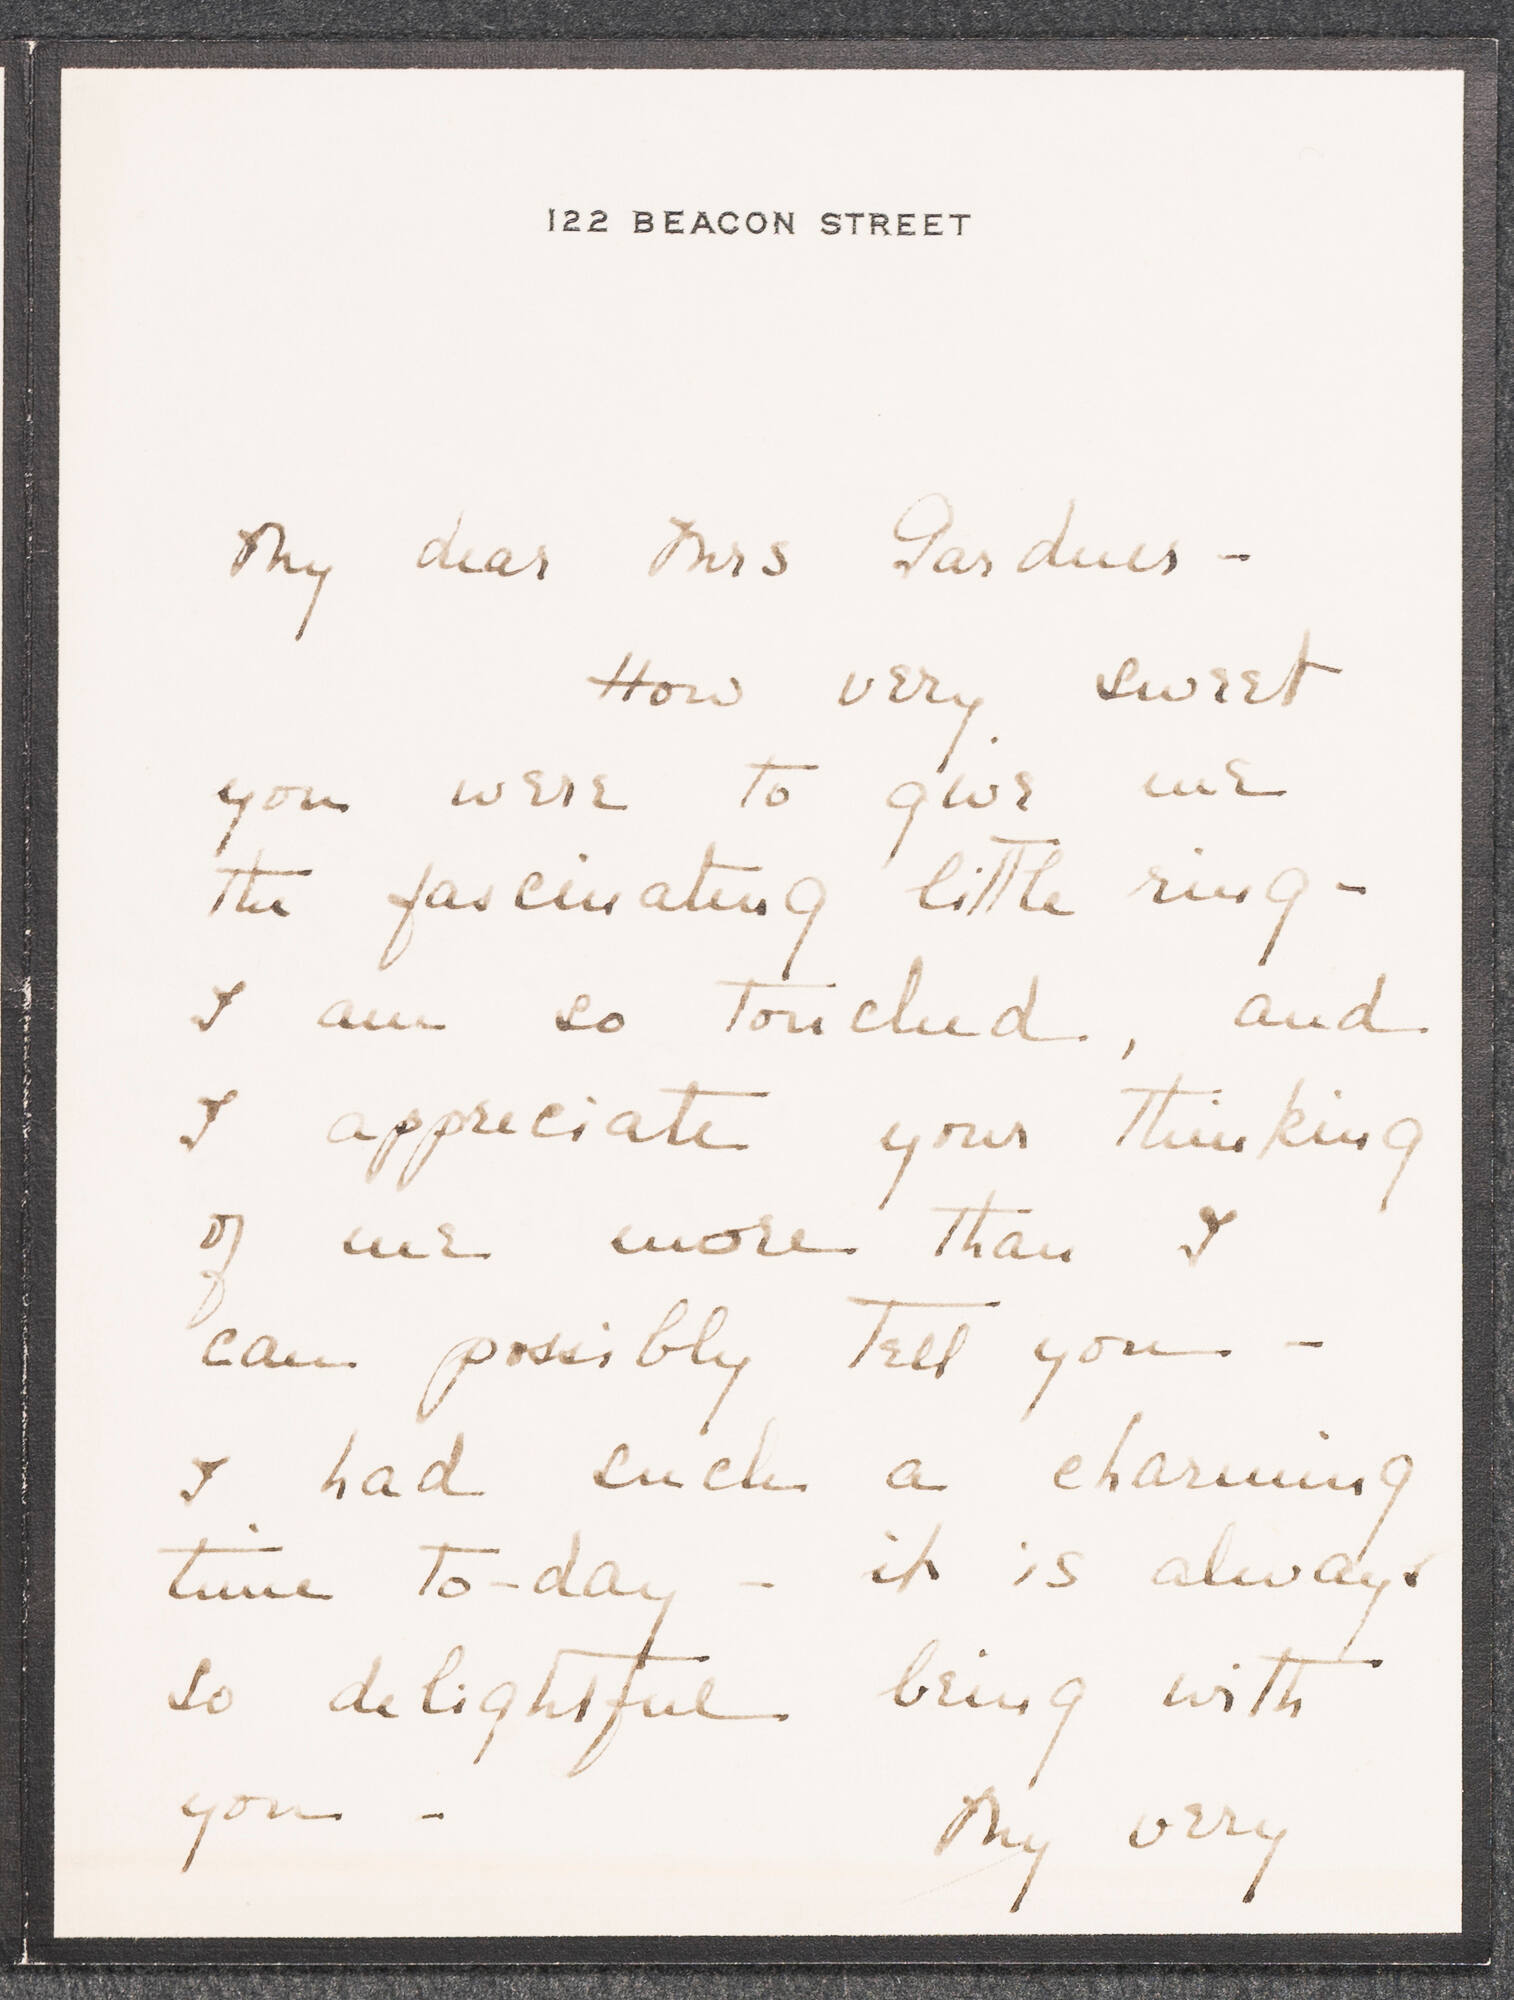 122 BEACON STREET
My dear Mrs Gardner –
How very sweet
you were to give me
the fascinating little ring –
I am so touched, and
I appreciate your thinking
of me more than I
can possibly tell you –
I had such a charming
time to-day – it is always
so delightful being with
you – My very